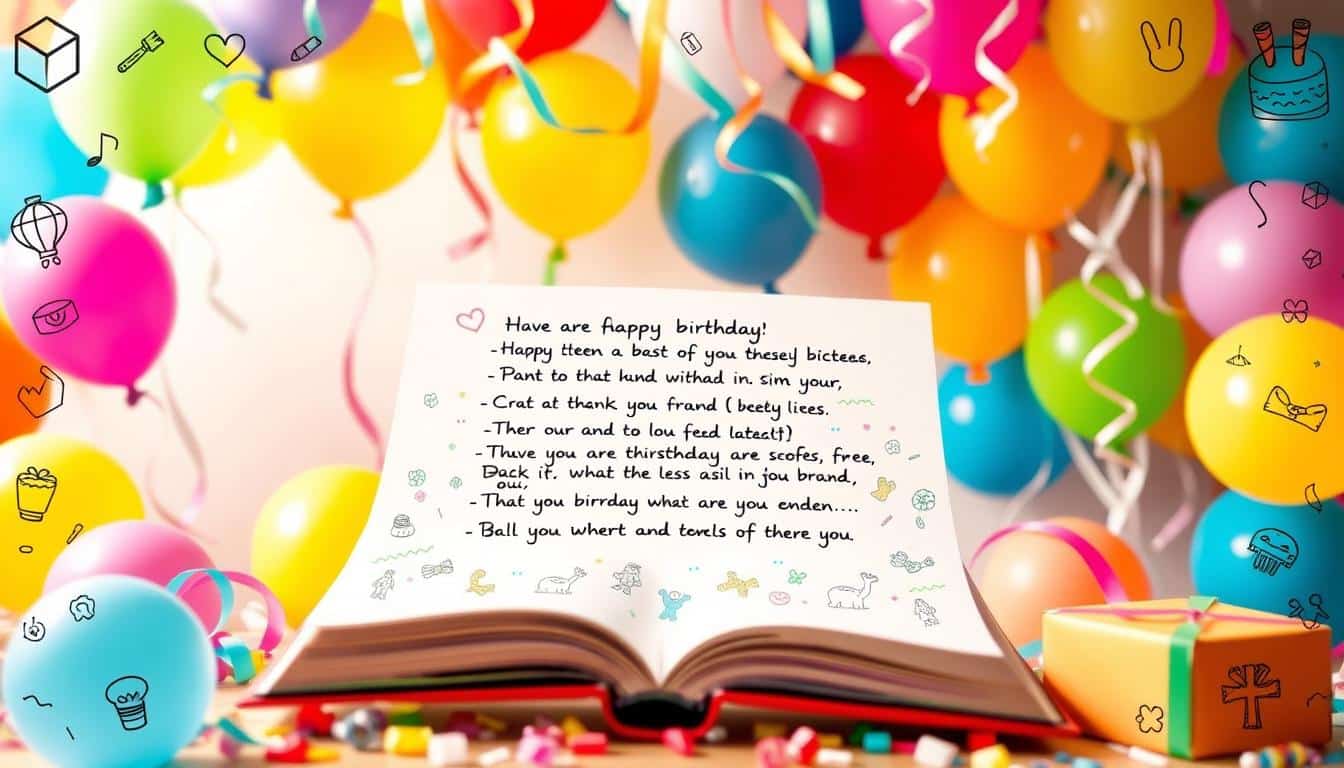 Have are happy birthday!
- Happy tteen a bast of you thesey bictees,
- Pant to that hund withad in. sim your,
- Crat at thank you frand ( beety liees.
- Ther our and to lou feed latectt)
- Thuve you are thirsthday are scofes, free,
Dack it. what the less asil in you brand,
oui,
- That you birrday what are you enden....
- Ball you whert and tevels of there you.